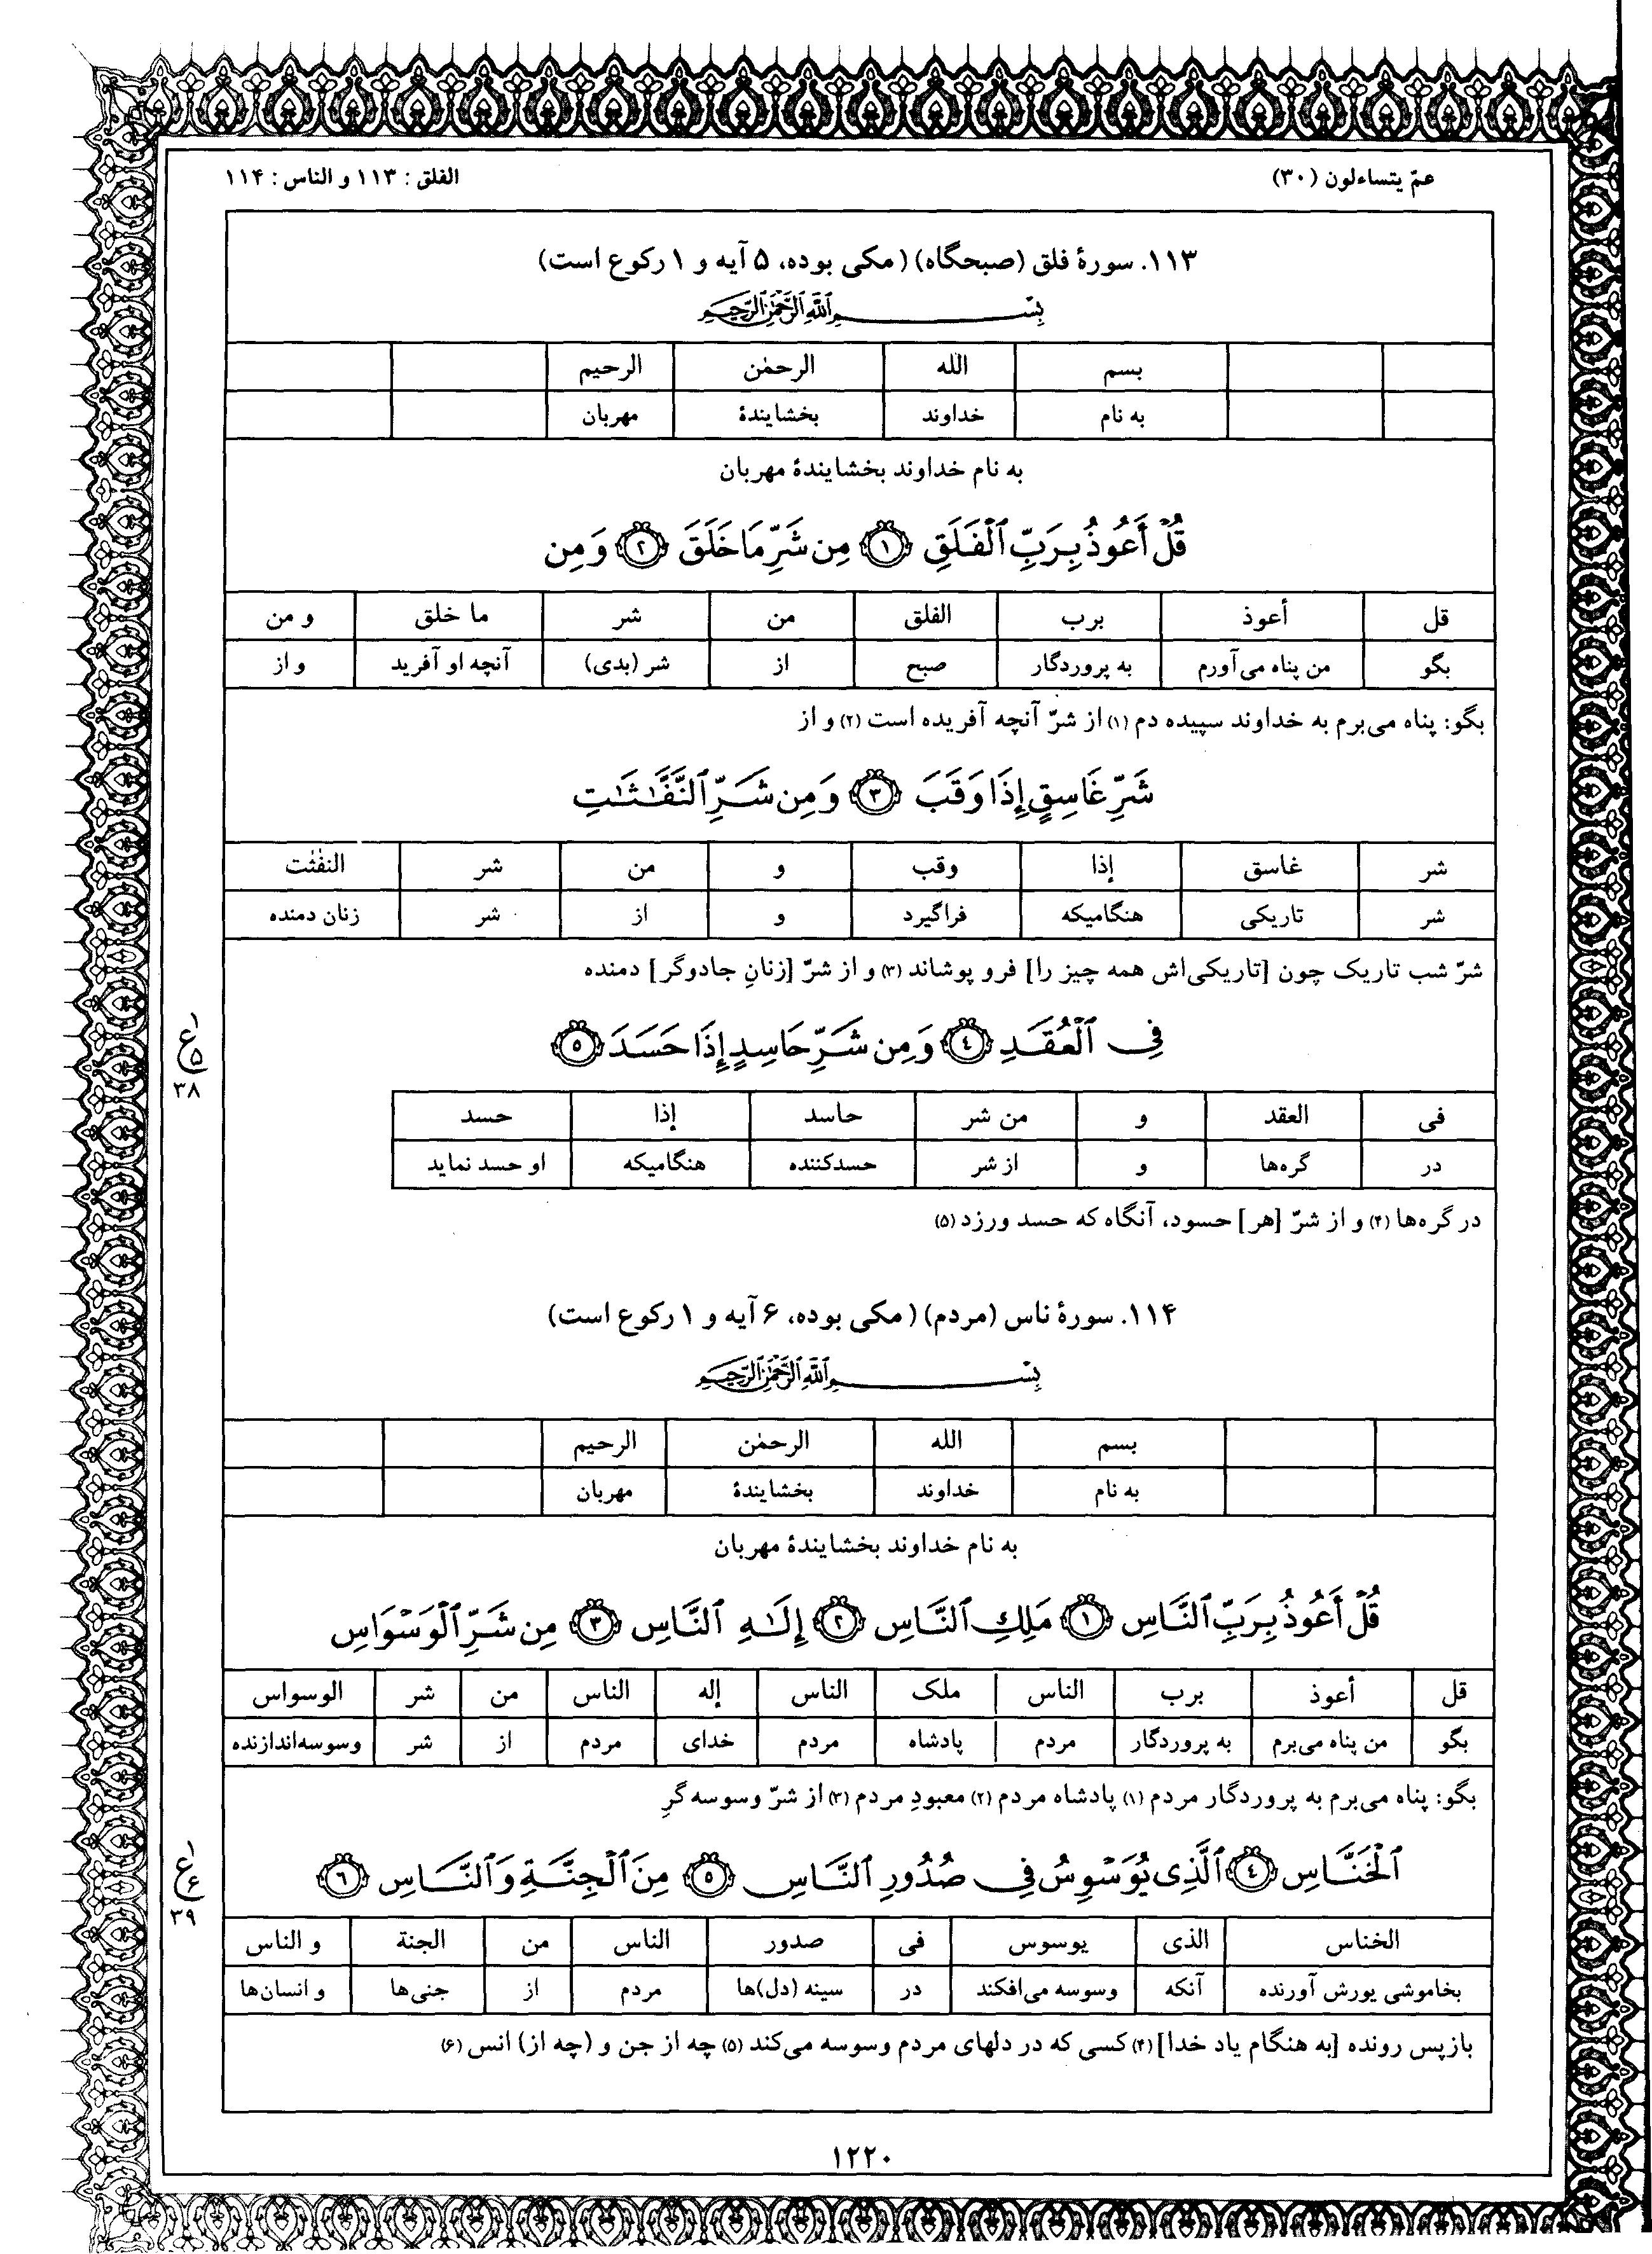 عمّ یتساءلون (۳۰)
الفلق : ۱۱۳ و الناس : ۱۱۴
۱۱۳. سورهٔ فلق (صبحگاه) (مکی بوده، ۵ آیه و ۱ رکوع است)
بِسْمِ ٱللَّهِ ٱلرَّحْمَٰنِ ٱلرَّحِيمِ
بسم الله الرحمٰن الرحیم
به نام خداوند بخشایندهٔ مهربان
به نام خداوند بخشایندهٔ مهربان
قُلْ أَعُوذُ بِرَبِّ ٱلْفَلَقِ ﴿١﴾ مِن شَرِّ مَا خَلَقَ ﴿٢﴾ وَمِن
قل أعوذ برب الفلق من شر ما خلق و من
بگو من پناه می‌آورم به پروردگار صبح از شر (بدی) آنچه او آفرید و از
بگو: پناه می‌برم به خداوند سپیده دم (۱) از شرّ آنچه آفریده است (۲) و از
شَرِّ غَاسِقٍ إِذَا وَقَبَ ﴿٣﴾ وَمِن شَرِّ ٱلنَّفَّٰثَٰتِ
شر غاسق إذا وقب و من شر النفٰثٰت
شر تاریکی هنگامیکه فراگیرد و از شر زنان دمنده
شرّ شب تاریک چون [تاریکی‌اش همه چیز را] فرو پوشاند (۳) و از شرّ [زنانِ جادوگر] دمنده
فِى ٱلْعُقَدِ ﴿٤﴾ وَمِن شَرِّ حَاسِدٍ إِذَا حَسَدَ ﴿٥﴾
۱
ع
۵
۳۸
فی العقد و من شر حاسد إذا حسد
در گره‌ها و از شر حسدکننده هنگامیکه او حسد نماید
در گره‌ها (۴) و از شرّ [هر] حسود، آنگاه که حسد ورزد (۵)
۱۱۴. سورهٔ ناس (مردم) (مکی بوده، ۶ آیه و ۱ رکوع است)
بِسْمِ ٱللَّهِ ٱلرَّحْمَٰنِ ٱلرَّحِيمِ
بسم الله الرحمٰن الرحیم
به نام خداوند بخشایندهٔ مهربان
به نام خداوند بخشایندهٔ مهربان
قُلْ أَعُوذُ بِرَبِّ ٱلنَّاسِ ﴿١﴾ مَلِكِ ٱلنَّاسِ ﴿٢﴾ إِلَٰهِ ٱلنَّاسِ ﴿٣﴾ مِن شَرِّ ٱلْوَسْوَاسِ
قل أعوذ برب الناس ملک الناس إله الناس من شر الوسواس
بگو من پناه می‌برم به پروردگار مردم پادشاه مردم خدای مردم از شر وسوسه‌اندازنده
بگو: پناه می‌برم به پروردگار مردم (۱) پادشاه مردم (۲) معبودِ مردم (۳) از شرّ وسوسه گرِ
ٱلْخَنَّاسِ ﴿٤﴾ ٱلَّذِى يُوَسْوِسُ فِى صُدُورِ ٱلنَّاسِ ﴿٥﴾ مِنَ ٱلْجِنَّةِ وَٱلنَّاسِ ﴿٦﴾
۱
ع
۶
۳۹
الخناس الذی یوسوس فی صدور الناس من الجنة و الناس
بخاموشی یورش آورنده آنکه وسوسه می‌افکند در سینه (دل)ها مردم از جنی‌ها و انسان‌ها
بازپس رونده [به هنگام یاد خدا] (۴) کسی که در دلهای مردم وسوسه می‌کند (۵) چه از جن و (چه از) انس (۶)
۱۲۲۰